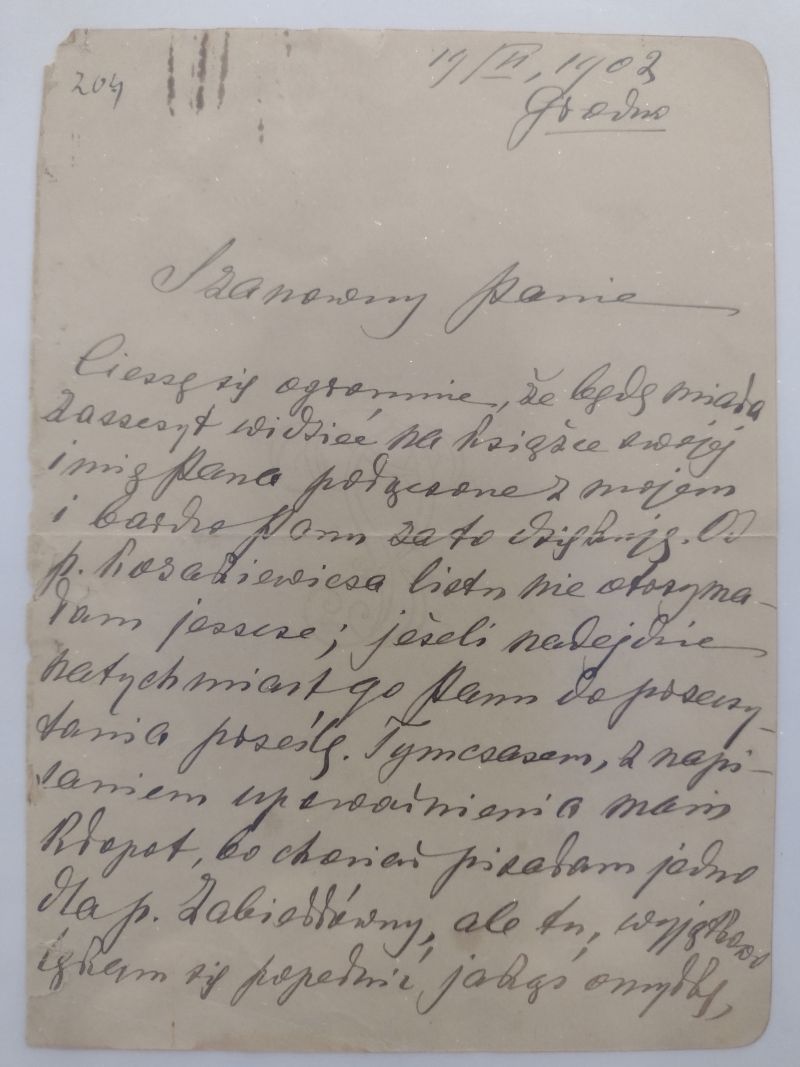 204
19/VI, 1902
Grodno
Szanowny Panie
Cieszę się ogromnie, że będę miała
zaszczyt widzieć na książce swojej
imię Pana połączone z mojem
i bardzo Panu za to dziękuję. Od
p. Kozakiewicza listu nie otrzyma-
łam jeszcze; jeżeli nadejdzie
natychmiast go Panu do przeczy-
tania prześlę. Tymczasem, z napi-
saniem upoważnienia mam
kłopot, bo chociaż pisałam jedno
dla p. Zabiełłówny, ale tu, wyjątkowo
lękam się popełnić jakąś omyłkę,